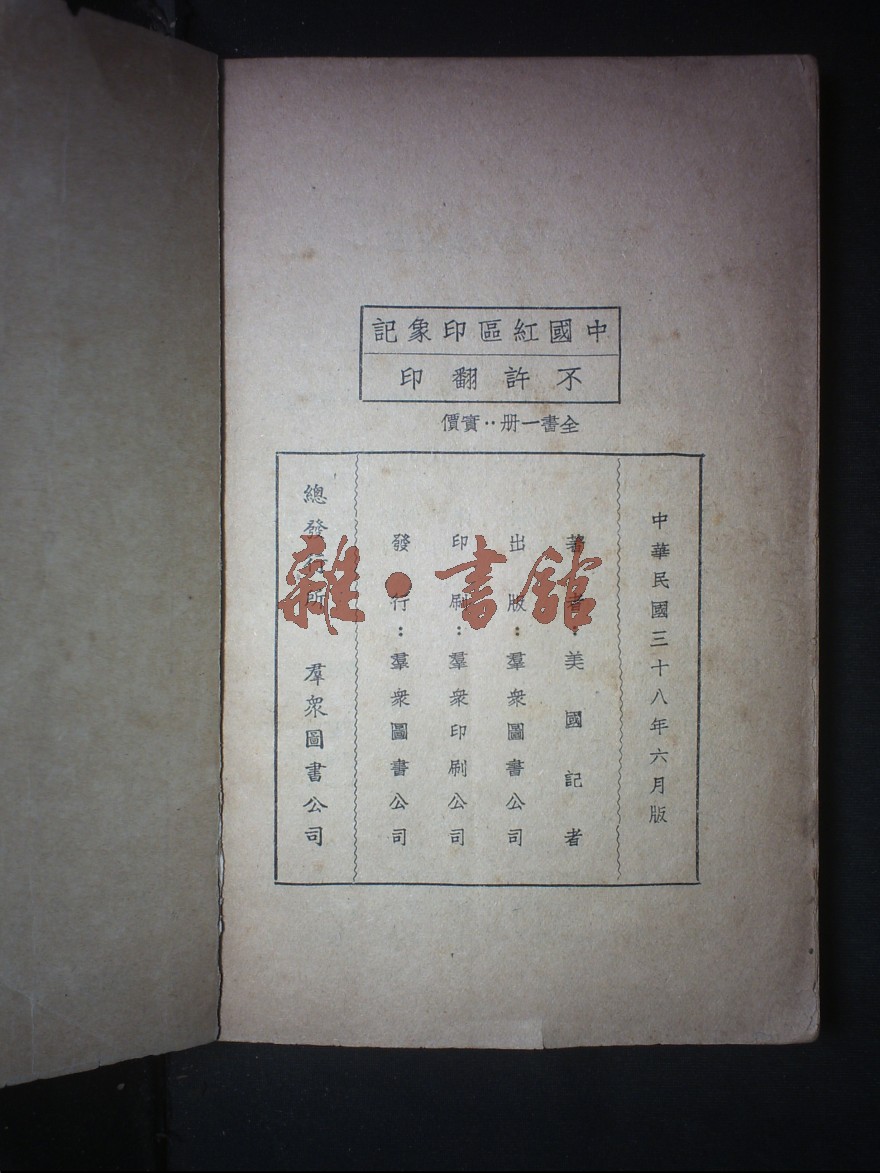 中國紅區印象記
不許翻印
全書一冊：實價
中華民國三十八年六月版
著者：美國記者
出版：羣衆圖書公司
印刷：羣衆印刷公司
發行：羣衆圖書公司
總發行所 羣衆圖書公司
雜·書館